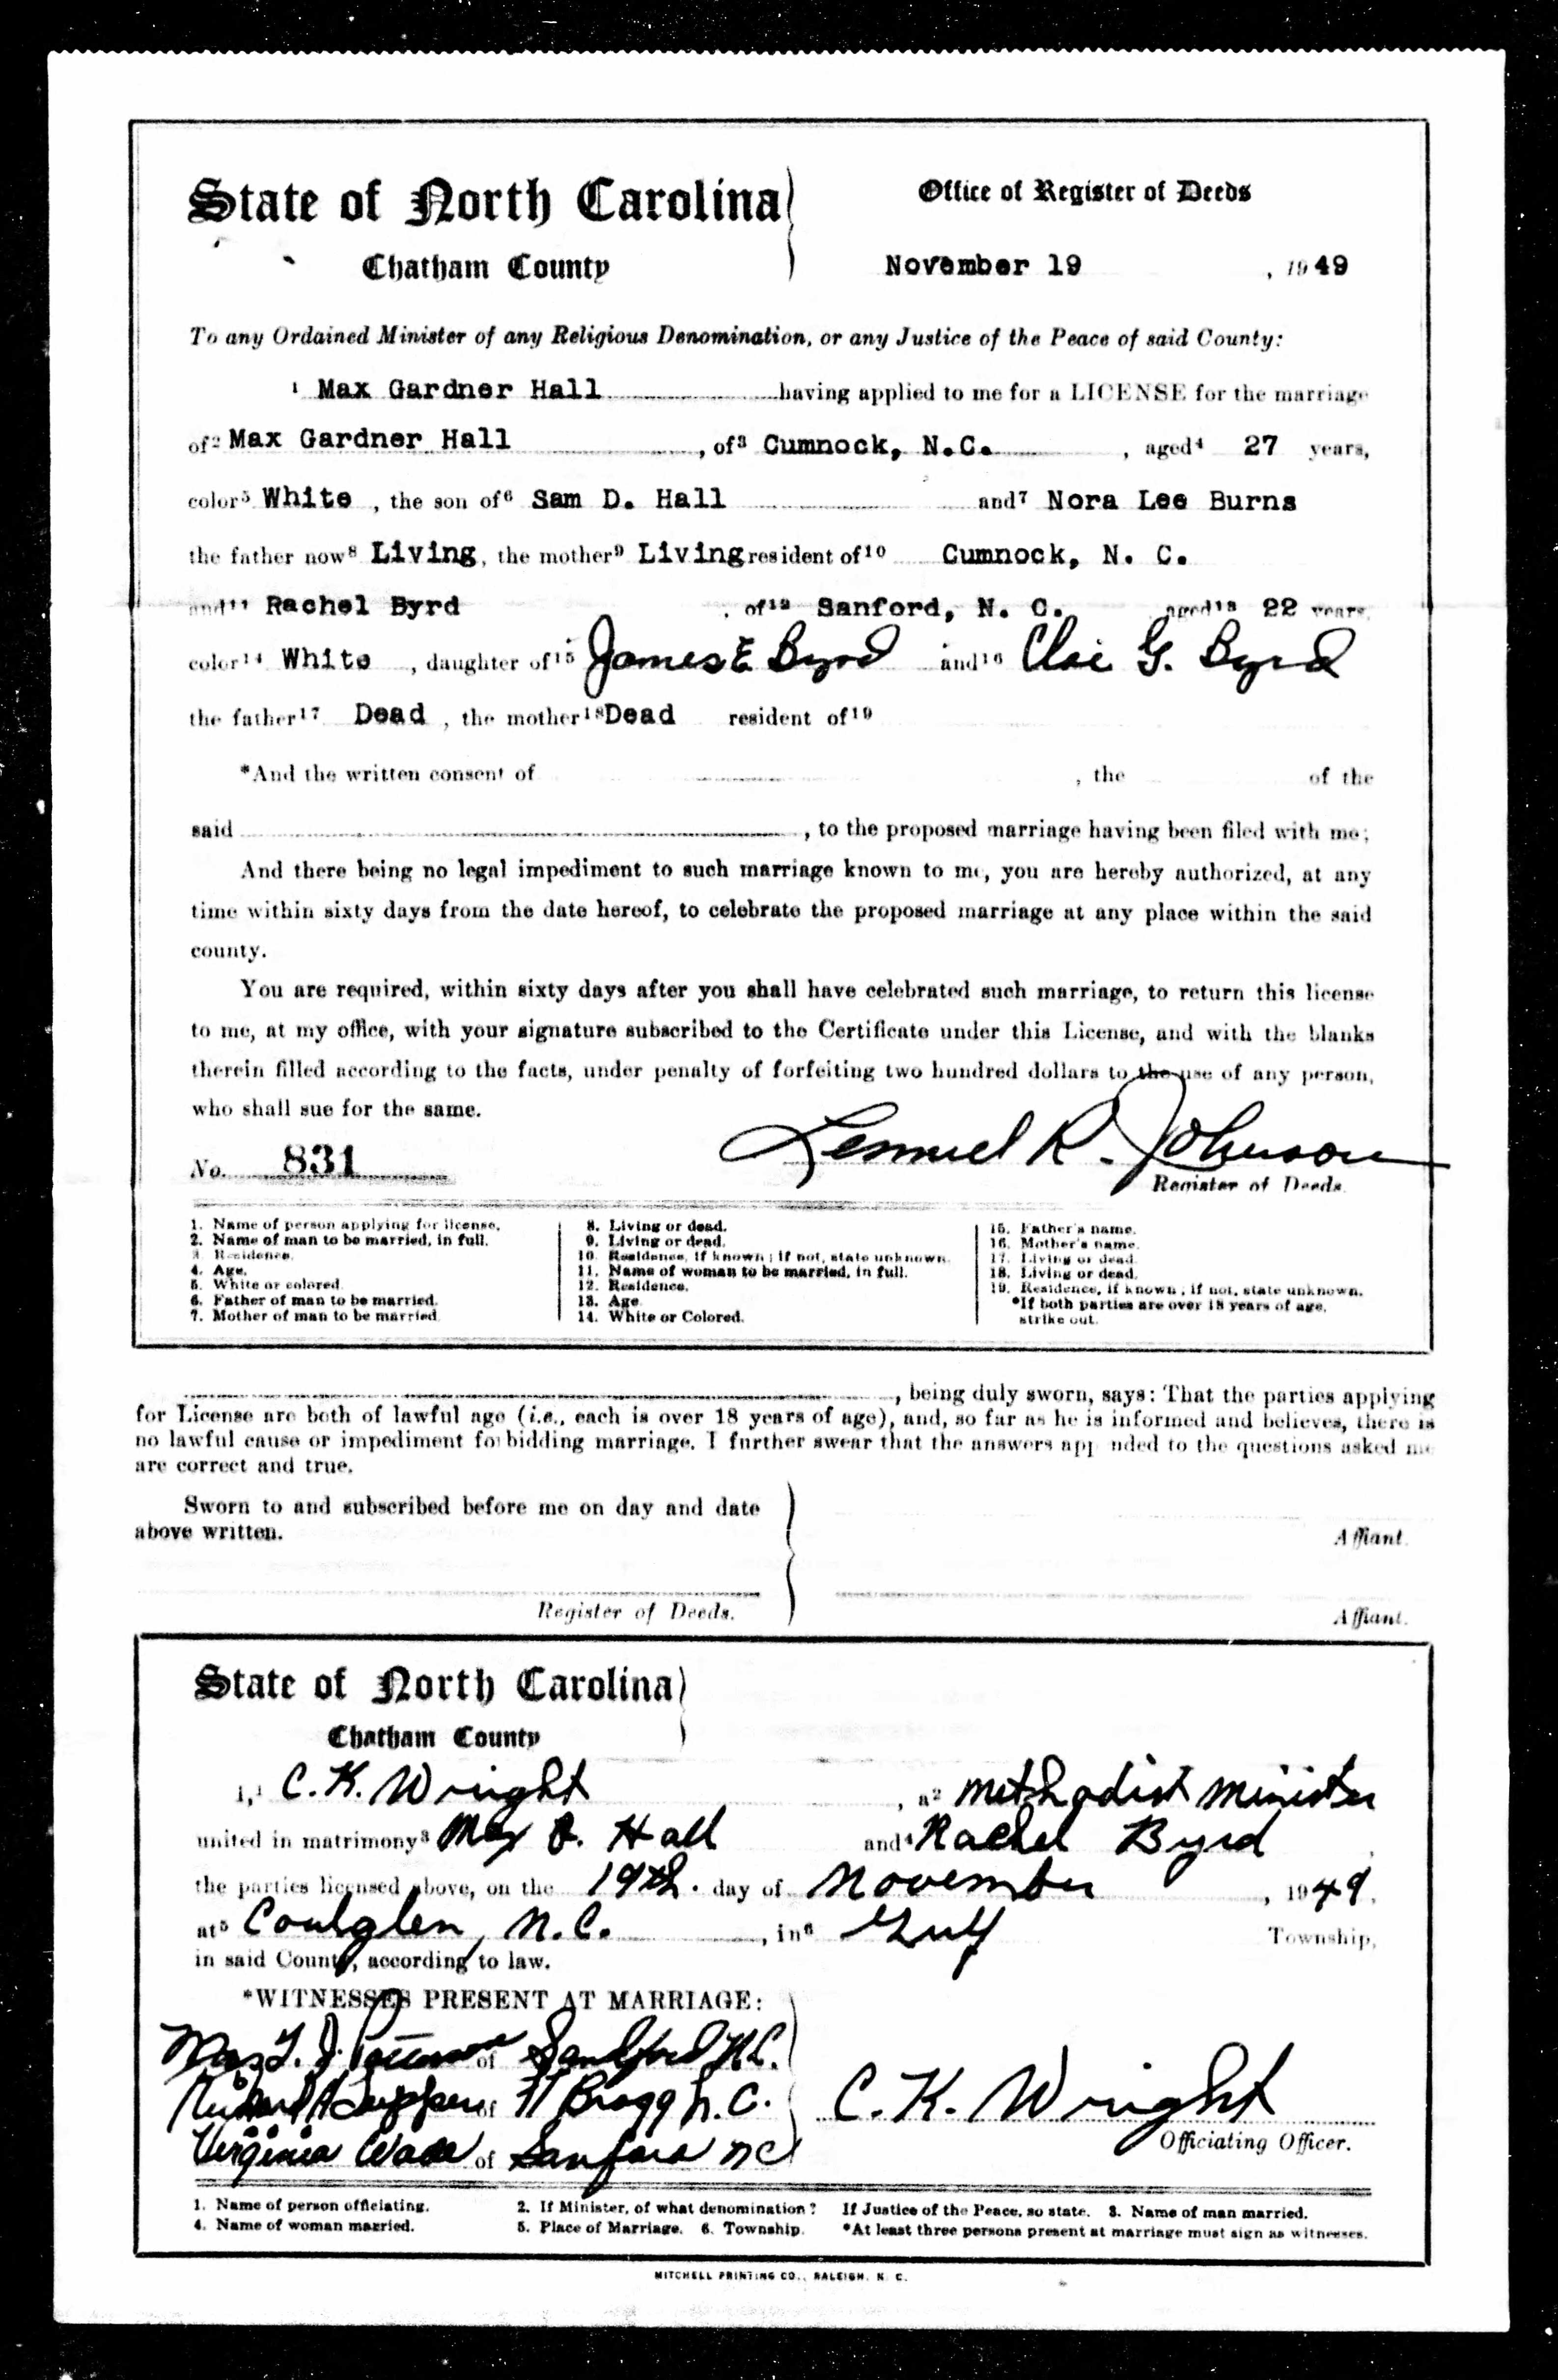 State of North Carolina
Chatham County
Office of Register of Deeds
November 19, 1949
To any Ordained Minister of any Religious Denomination, or any Justice of the Peace of said County:
1 Max Gardner Hall having applied to me for a LICENSE for the marriage
of2 Max Gardner Hall, of3 Cumnock, N.C., aged4 27 years,
color5 White, the son of6 Sam D. Hall and7 Nora Lee Burns
the father now8 Living, the mother9 Living resident of10 Cumnock, N. C.
and11 Rachel Byrd, of12 Sanford, N. C. aged13 22 years
color14 White, daughter of15 James E Byrd and16 G. Byrd
the father17 Dead, the mother18 Dead resident of19
*And the written consent of , the of the
said , to the proposed marriage having been filed with me;
And there being no legal impediment to such marriage known to me, you are hereby authorized, at any
time within sixty days from the date hereof, to celebrate the proposed marriage at any place within the said
county.
You are required, within sixty days after you shall have celebrated such marriage, to return this license
to me, at my office, with your signature subscribed to the Certificate under this License, and with the blanks
therein filled according to the facts, under penalty of forfeiting two hundred dollars to the use of any person,
who shall sue for the same.
No. 831
Lemuel R. Johnson
Register of Deeds.
1. Name of person applying for license.
2. Name of man to be married, in full.
3. Residence.
4. Age.
5. White or colored.
6. Father of man to be married.
7. Mother of man to be married.
8. Living or dead.
9. Living or dead.
10. Residence, if known; if not, state unknown.
11. Name of woman to be married, in full.
12. Residence.
13. Age
14. White or Colored.
15. Father's name.
16. Mother's name.
17. Living or dead.
18. Living or dead.
19. Residence, if known; if not, state unknown.
*If both parties are over 18 years of age,
strike out.
, being duly sworn, says: That the parties applying
for License are both of lawful age (i.e., each is over 18 years of age), and, so far as he is informed and believes, there is
no lawful cause or impediment forbidding marriage. I further swear that the answers appended to the questions asked me
are correct and true.
Sworn to and subscribed before me on day and date
above written.
Affiant.
Register of Deeds.
Affiant.
State of North Carolina
Chatham County
I,1 C. K. Wright, a2 Methodist Minister
united in matrimony3 Max G. Hall and4 Rachel Byrd,
the parties licensed above, on the 19th. day of November, 1949,
at5 Coalglen, N.C., in6 Gulf Township,
in said County, according to law.
*WITNESSES PRESENT AT MARRIAGE:
Mrs. T. J. of Sanford N.C.
Richard A of Ft Bragg N. C.
Virginia Wade of Sanford NC
C. K. Wright
Officiating Officer.
1. Name of person officiating. 2. If Minister, of what denomination? If Justice of the Peace, so state. 3. Name of man married.
4. Name of woman married. 5. Place of Marriage. 6. Township. *At least three persons present at marriage must sign as witnesses.
MITCHELL PRINTING CO., RALEIGH, N. C.